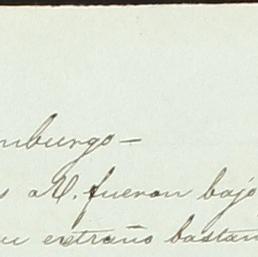 mburgo—
s M. fueron bajo
ue extraño bastan